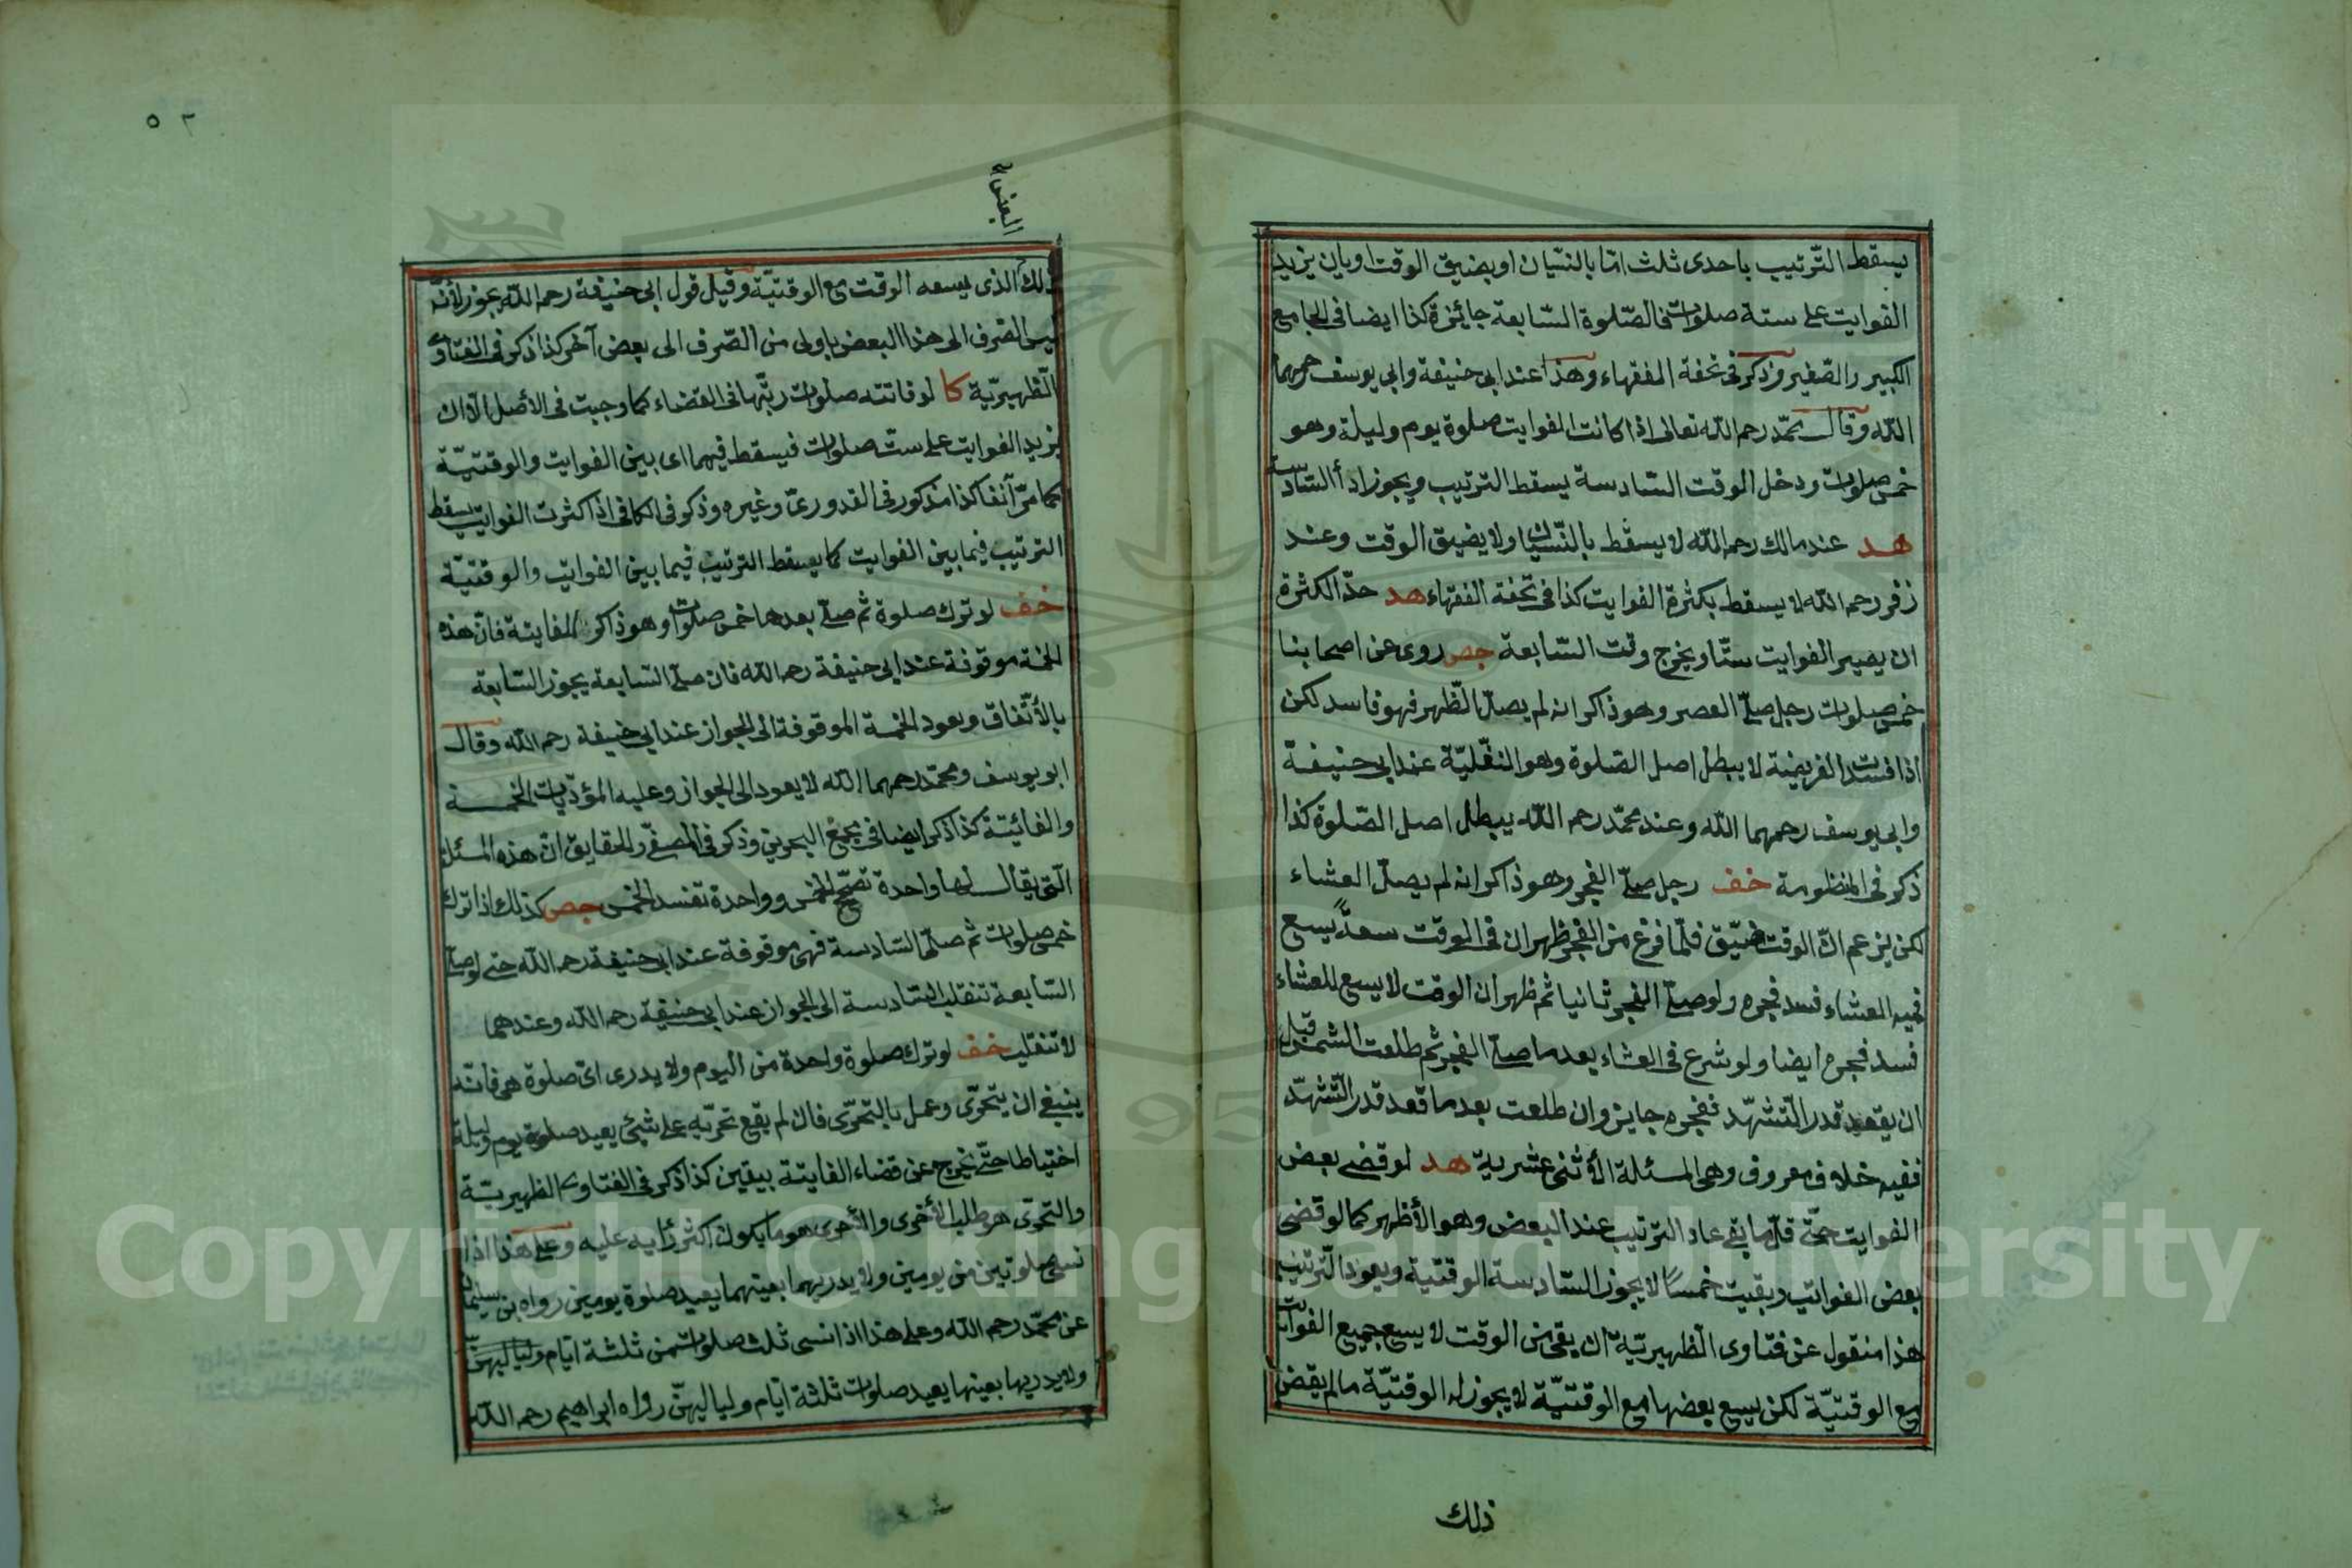 يسقط الترتيب باحدى ثلث امّا بالنسيان او بضيق الوقت او بان يزيد
الفوايت على ستة صلوات فالصّلوة السّابعة جائزة كذا ايضا فى الجامع
الكبير والصّغير وذكر فى تحفة الفقهاء وهذا عند ابى حنيفة وابى يوسف رحمهما
اللّه وقال محمّد رحم اللّه تعالى اذا كانت الفوايت صلوة يوم وليلة وهو
خمس صلوات ودخل الوقت السّادسة يسقط الترتيب ويجوز اداء السّادسة
هد عند مالك رحم اللّه لا يسقط بالنّسيان ولا بضيق الوقت وعند
زفر رحم اللّه لا يسقط بكثرة الفوايت كذا فى تحفة الفقهاء هد حدّ الكثرة
ان يصير الفوايت ستّا ويخرج وقت السّابعة جص روى عن اصحابنا
خمس صلوات رجل صلّى العصر وهو ذاكر انه لم يصلّ الظّهر فهو فاسد لكن
اذا فسدت الفريضة لا يبطل اصل الصّلوة وهو النفليّة عند ابى حنيفة
وابى يوسف رحمهما اللّه وعند محمّد رحم اللّه يبطل اصل الصّلوة كذا
ذكر فى المنظومة خف رجل صلّى الفجر وهو ذاكر انه لم يصلّ العشاء
لكن يزعم انّ الوقت ضيّق فلمّا فرغ من الفجر ظهر ان فى الوقت سعةً يسع
فيه العشاء فسد فجره ولو صلّى الفجر ثانيا ثم ظهر ان الوقت لا يسع للعشاء
فسد فجره ايضا ولو شرع فى العشاء بعد ما صلّى الفجر ثم طلعت الشمس قبل
ان يقعد قدر التّشهّد ففجره جايز وان طلعت بعد ما قعد قدر التّشهّد
ففيه خلاف معروف وهى المسئلة الأثنى عشرية هد لو قضى بعض
الفوايت حتّى قلّ ما بقى عاد الترتيب عند البعض وهو الأظهر كما لو قضى
بعض الفوائت وبقيت خمساً لا يجوز السّادسة الوقتية ويعود الترتيب
هذا منقول عن فتاوى الظهيريّة ان بقى من الوقت لا يسع جميع الفوائت
مع الوقتيّة لكن يسع بعضها مع الوقتيّة لا يجوز له الوقتيّة ما لم يقض
ذلك
٥٣
البعض
ذلك الذى يسعه الوقت مع الوقتيّة وقيل قول ابى حنيفة رحم اللّه يجوز لأنّه
ليس الصّرف الى هذا البعض باولى من الصّرف الى بعض آخر كذا ذكر فى الفتاوى
الظّهيريّة كا لو فاتته صلوات رتّبها فى القضاء كما وجبت فى الأصل الّا ان
يزيد الفوايت على ستّ صلوات فيسقط فيهما اى بين الفوايت والوقتيّة
كما مرّ آنفا كذا مذكور فى القدورىّ وغيره وذكر فى الكافى اذا كثرت الفوايت يسقط
الترتيب فيما بين الفوايت كما يسقط الترتيب فيما بين الفوائت والوقتيّة
خف لو ترك صلوة ثم صلّى بعدها خمس صلوات وهو ذاكر للفايتة فانّ هذه
الخمسة موقوفة عند ابى حنيفة رحم اللّه فان صلّى السّابعة يجوز السّابعة
بالأتّفاق ويعود الخمسة الموقوفة الى الجواز عند ابى حنيفة رحم اللّه وقال
ابو يوسف ومحمّد رحمهما اللّه لا يعود الى الجواز وعليه المؤدّيات الخمسة
والفائتة كذا ذكر ايضا فى مجمع البحرين وذكر فى المصفّى والحقايق انّ هذه المسئلة
الّتى يقال لها واحدة تصحّح الخمس وواحدة تفسد الخمس جص كذلك اذا ترك
خمس صلوات ثم صلّى السّادسة فهى موقوفة عند ابى حنيفة رحم اللّه حتى لو صلّى
السّابعة تنقلب السّادسة الى الجواز عند ابى حنيفة رحم اللّه وعندهما
لا تنقلب خف لو ترك صلوة واحدة من اليوم ولا يدرى اىّ صلوة هى فانّه
ينبغى ان يتحرّى وعمل بالتحرّى فان لم يقع تحرّيه على شيئ يعيد صلوة يوم وليلة
احتياطا حتّى يخرج عن قضاء الفايتة بيقين كذا ذكر فى الفتاوى الظهيريّة
والتحرّى هو طلب الأحرى والأحرى هو ما يكون اكثر رأيه عليه وعلى هذا اذا
نسى صلوتين من يومين ولا يدريهما بعينهما يعيد صلوة يومين رواه بن سليمان
عن محمّد رحم اللّه وعلى هذا اذا نسى ثلث صلوات من ثلثة ايّام ولياليهنّ
ولا يدريها بعينها يعيد صلوات ثلثة ايّام ولياليهنّ رواه ابراهيم رحم اللّه
Copyright © King Saud University
1957